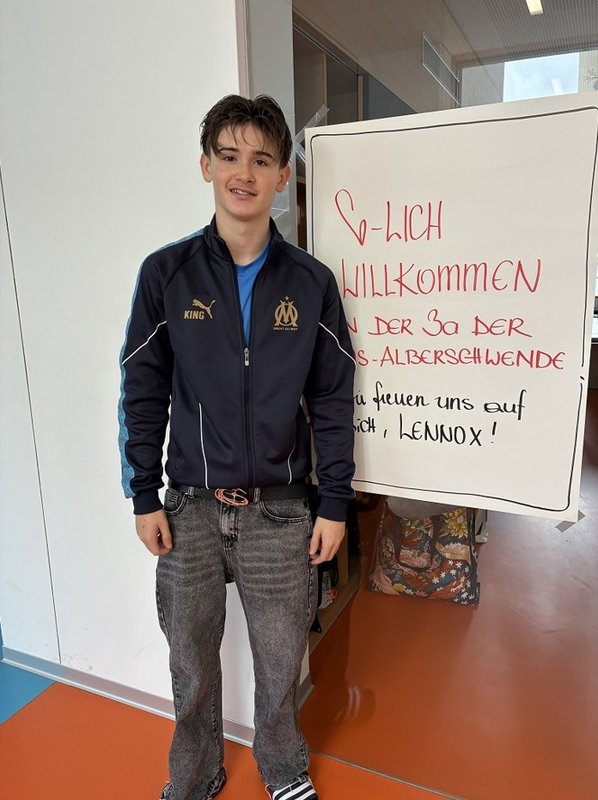 KING
DROIT AU BUT
G-LICH
WILLKOMMEN
N DER 3a DER
S-ALBERSCHWENDE
freuen uns auf
ICH, LENNOX!